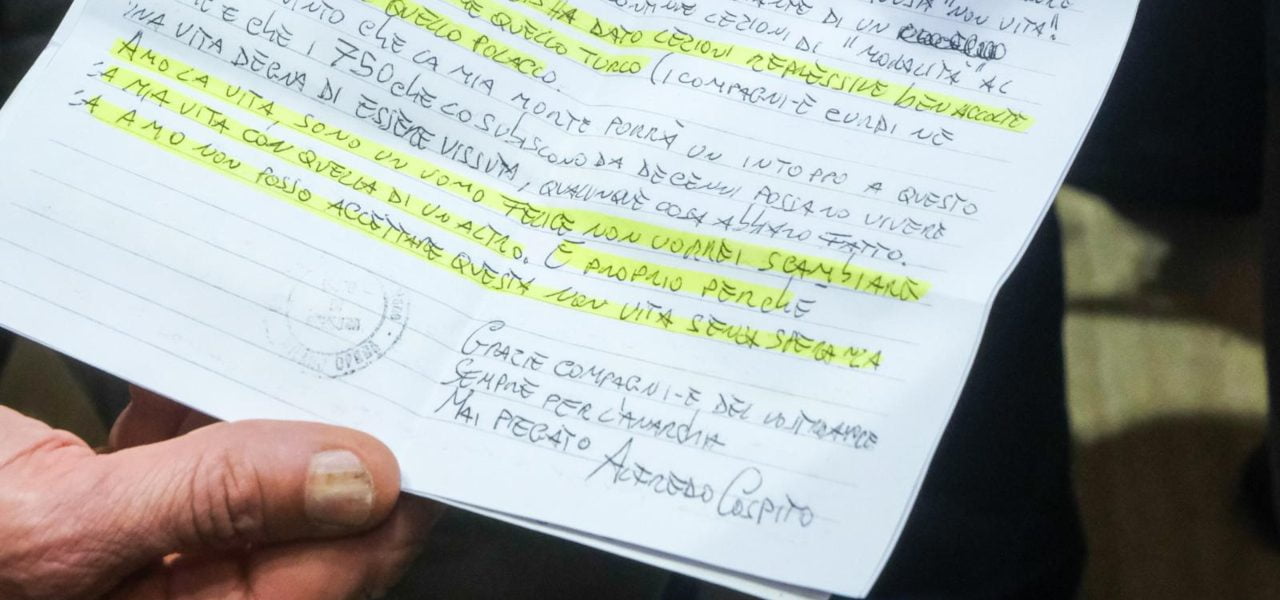 "NON VITA".
DI UN
CONTINUE LEZIONI DI "MORALITÀ" AL
HA DATO LEZIONI REPRESSIVE BEN ACCOLTE
QUELLO TURCO (I COMPAGNI-E CURDI NE
QUELLO POLACCO.
CHE LA MIA MORTE PORRÀ UN INTOPPO A QUESTO
E CHE I 750 CHE LO SUBISCONO DA DECENNI POSSANO VIVERE
UNA VITA DEGNA DI ESSERE VISSUTA, QUALUNQUE COSA ABBIANO FATTO.
AMO LA VITA SONO UN UOMO FELICE NON VORREI SCAMBIARE
A MIA VITA CON QUELLA DI UN ALTRO. È PROPRIO PERCHÉ
A AMO NON POSSO ACCETTARE QUESTA NON VITA SENZA SPERANZA
GRAZIE COMPAGNI-E DEL VOSTRO AMORE
SEMPRE PER L'ANARCHIA
MAI PIEGATO ALFREDO COSPITO